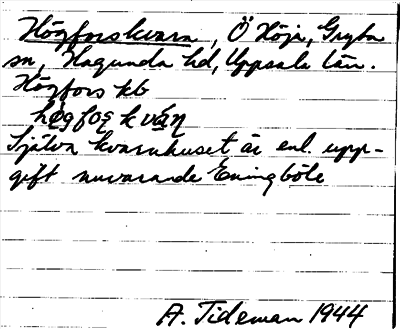 Högforskvarn, Ö Höja, Gryta
sn, Hagunda hd, Uppsala län.
Högfors kb
høgfoʂ kváɳ
Själva kvarnhuset är enl. upp-
gift nuvarande Eningböle
A. Tideman 1944